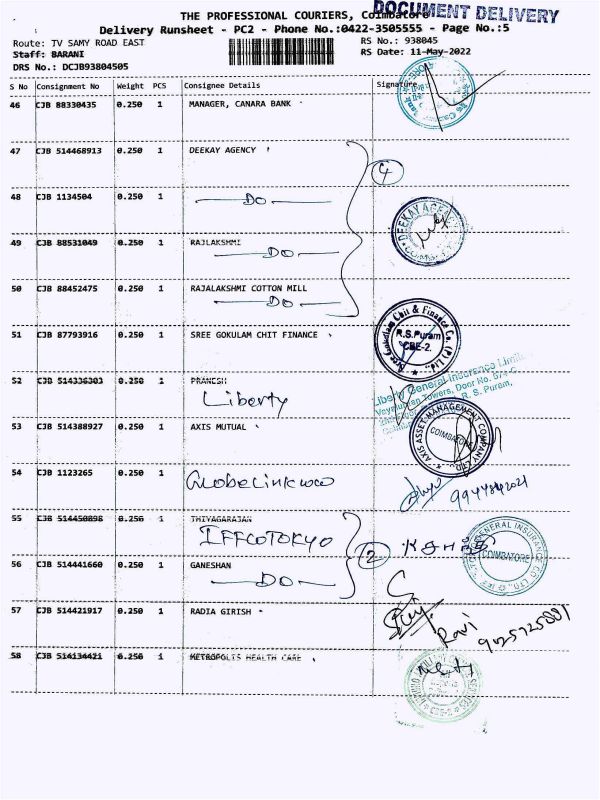 DOCUMENT DELIVERY
THE PROFESSIONAL COURIERS, Coimbatore
Delivery Runsheet - PC2 - Phone No.:0422-3505555 - Page No.:5
Route: TV SAMY ROAD EAST RS No.: 938045
Staff: BARANI RS Date: 11-May-2022
DRS No.: DCJB93804505
S No Consignment No Weight PCS Consignee Details Signature
46 CJB 88330435 0.250 1 MANAGER, CANARA BANK
47 CJB 514468913 0.250 1 DEEKAY AGENCY
4
48 CJB 1134504 0.250 1 DO
DEEKAY AGENCY
49 CJB 88531049 0.250 1 RAJLAKSHMI
DO
50 CJB 88452475 0.250 1 RAJALAKSHMI COTTON MILL
DO
Sree Gokulam Chit & Finance Co. (P) Ltd.
51 CJB 87793916 0.250 1 SREE GOKULAM CHIT FINANCE
R.S.Puram
CBE-2.
52 CJB 514336303 0.250 1 PRANESH
Liberty
Liberty General Insurance Limited
Towers, Door No. 574-C
R. S. Puram,
53 CJB 514388927 0.250 1 AXIS MUTUAL
AXIS ASSET MANAGEMENT COMPANY LTD.
COIMBATORE
54 CJB 1123265 0.250 1 Globelink WW
9944842021
55 CJB 514450898 0.250 1 THIYAGARAJAN
IFFCOTOKYO
2
GENERAL INSURANCE CO. LTD.
COIMBATORE
56 CJB 514441660 0.250 1 GANESHAN
DO
57 CJB 514421917 0.250 1 RADIA GIRISH
Ravi
58 CJB 514134421 0.250 1 METROPOLIS HEALTH CARE
CBE-2